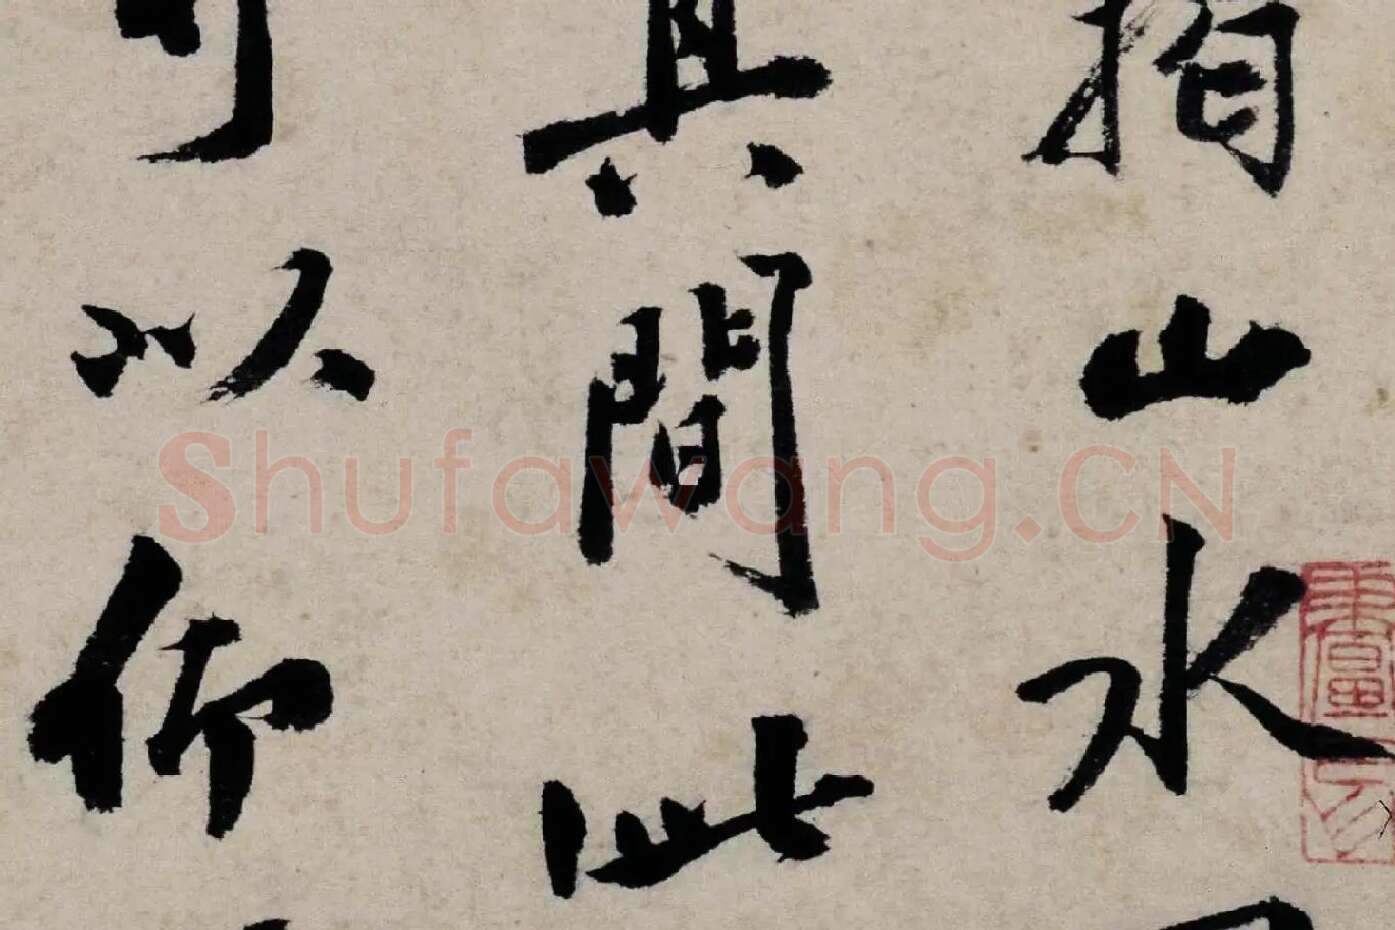 山水
其間此
可以仰
Shufawang.CN